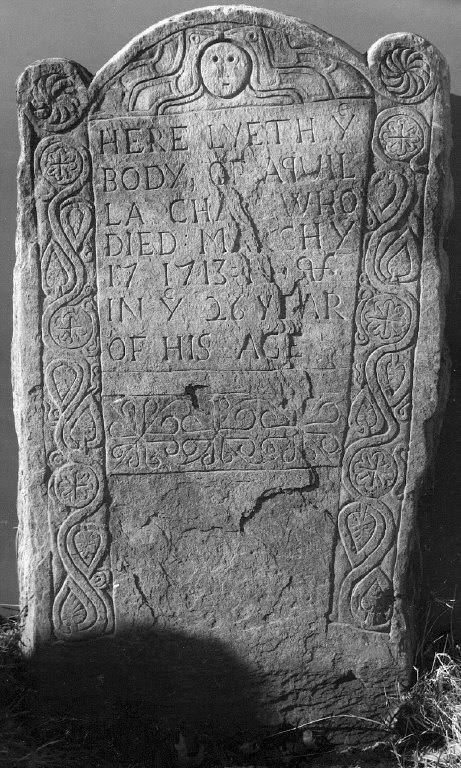 HERE LYETH Yᵉ
BODY, OF AQUIL
LA CHA WHO
DIED MARCH Yᵉ
17 1713
IN Yᵉ 26 YEAR
OF HIS AGE